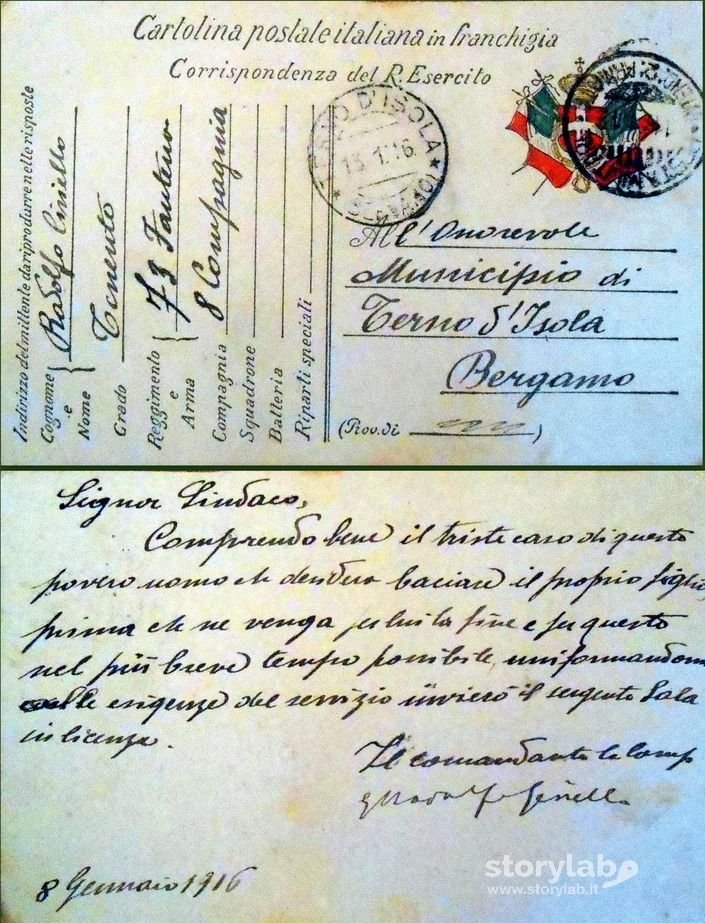 Cartolina postale italiana in franchigia
Corrispondenza del R. Esercito
Indirizzo del mittente da riprodurre nelle risposte
Cognome e Nome { Radolfo Cinello
Grado Tenente
Reggimento e Arma { 73 Fanteria
Compagnia 8 Compagnia
Squadrone
Batteria
Riparti speciali
D'ISOLA
13.1.16
All'Onorevole
Municipio di
Terno d'Isola
Bergamo
(Prov. di )
Signor Sindaco,
Comprendo bene il triste caso di questo
povero uomo che desidera baciare il proprio figlio
prima che ne venga per lui la fine e per questo
nel più breve tempo possibile, uniformandomi
alle esigenze del servizio invierò il sergente Sala
in licenza.
Il comandante la comp
8 Gennaio 1916
storylab
www.storylab.it